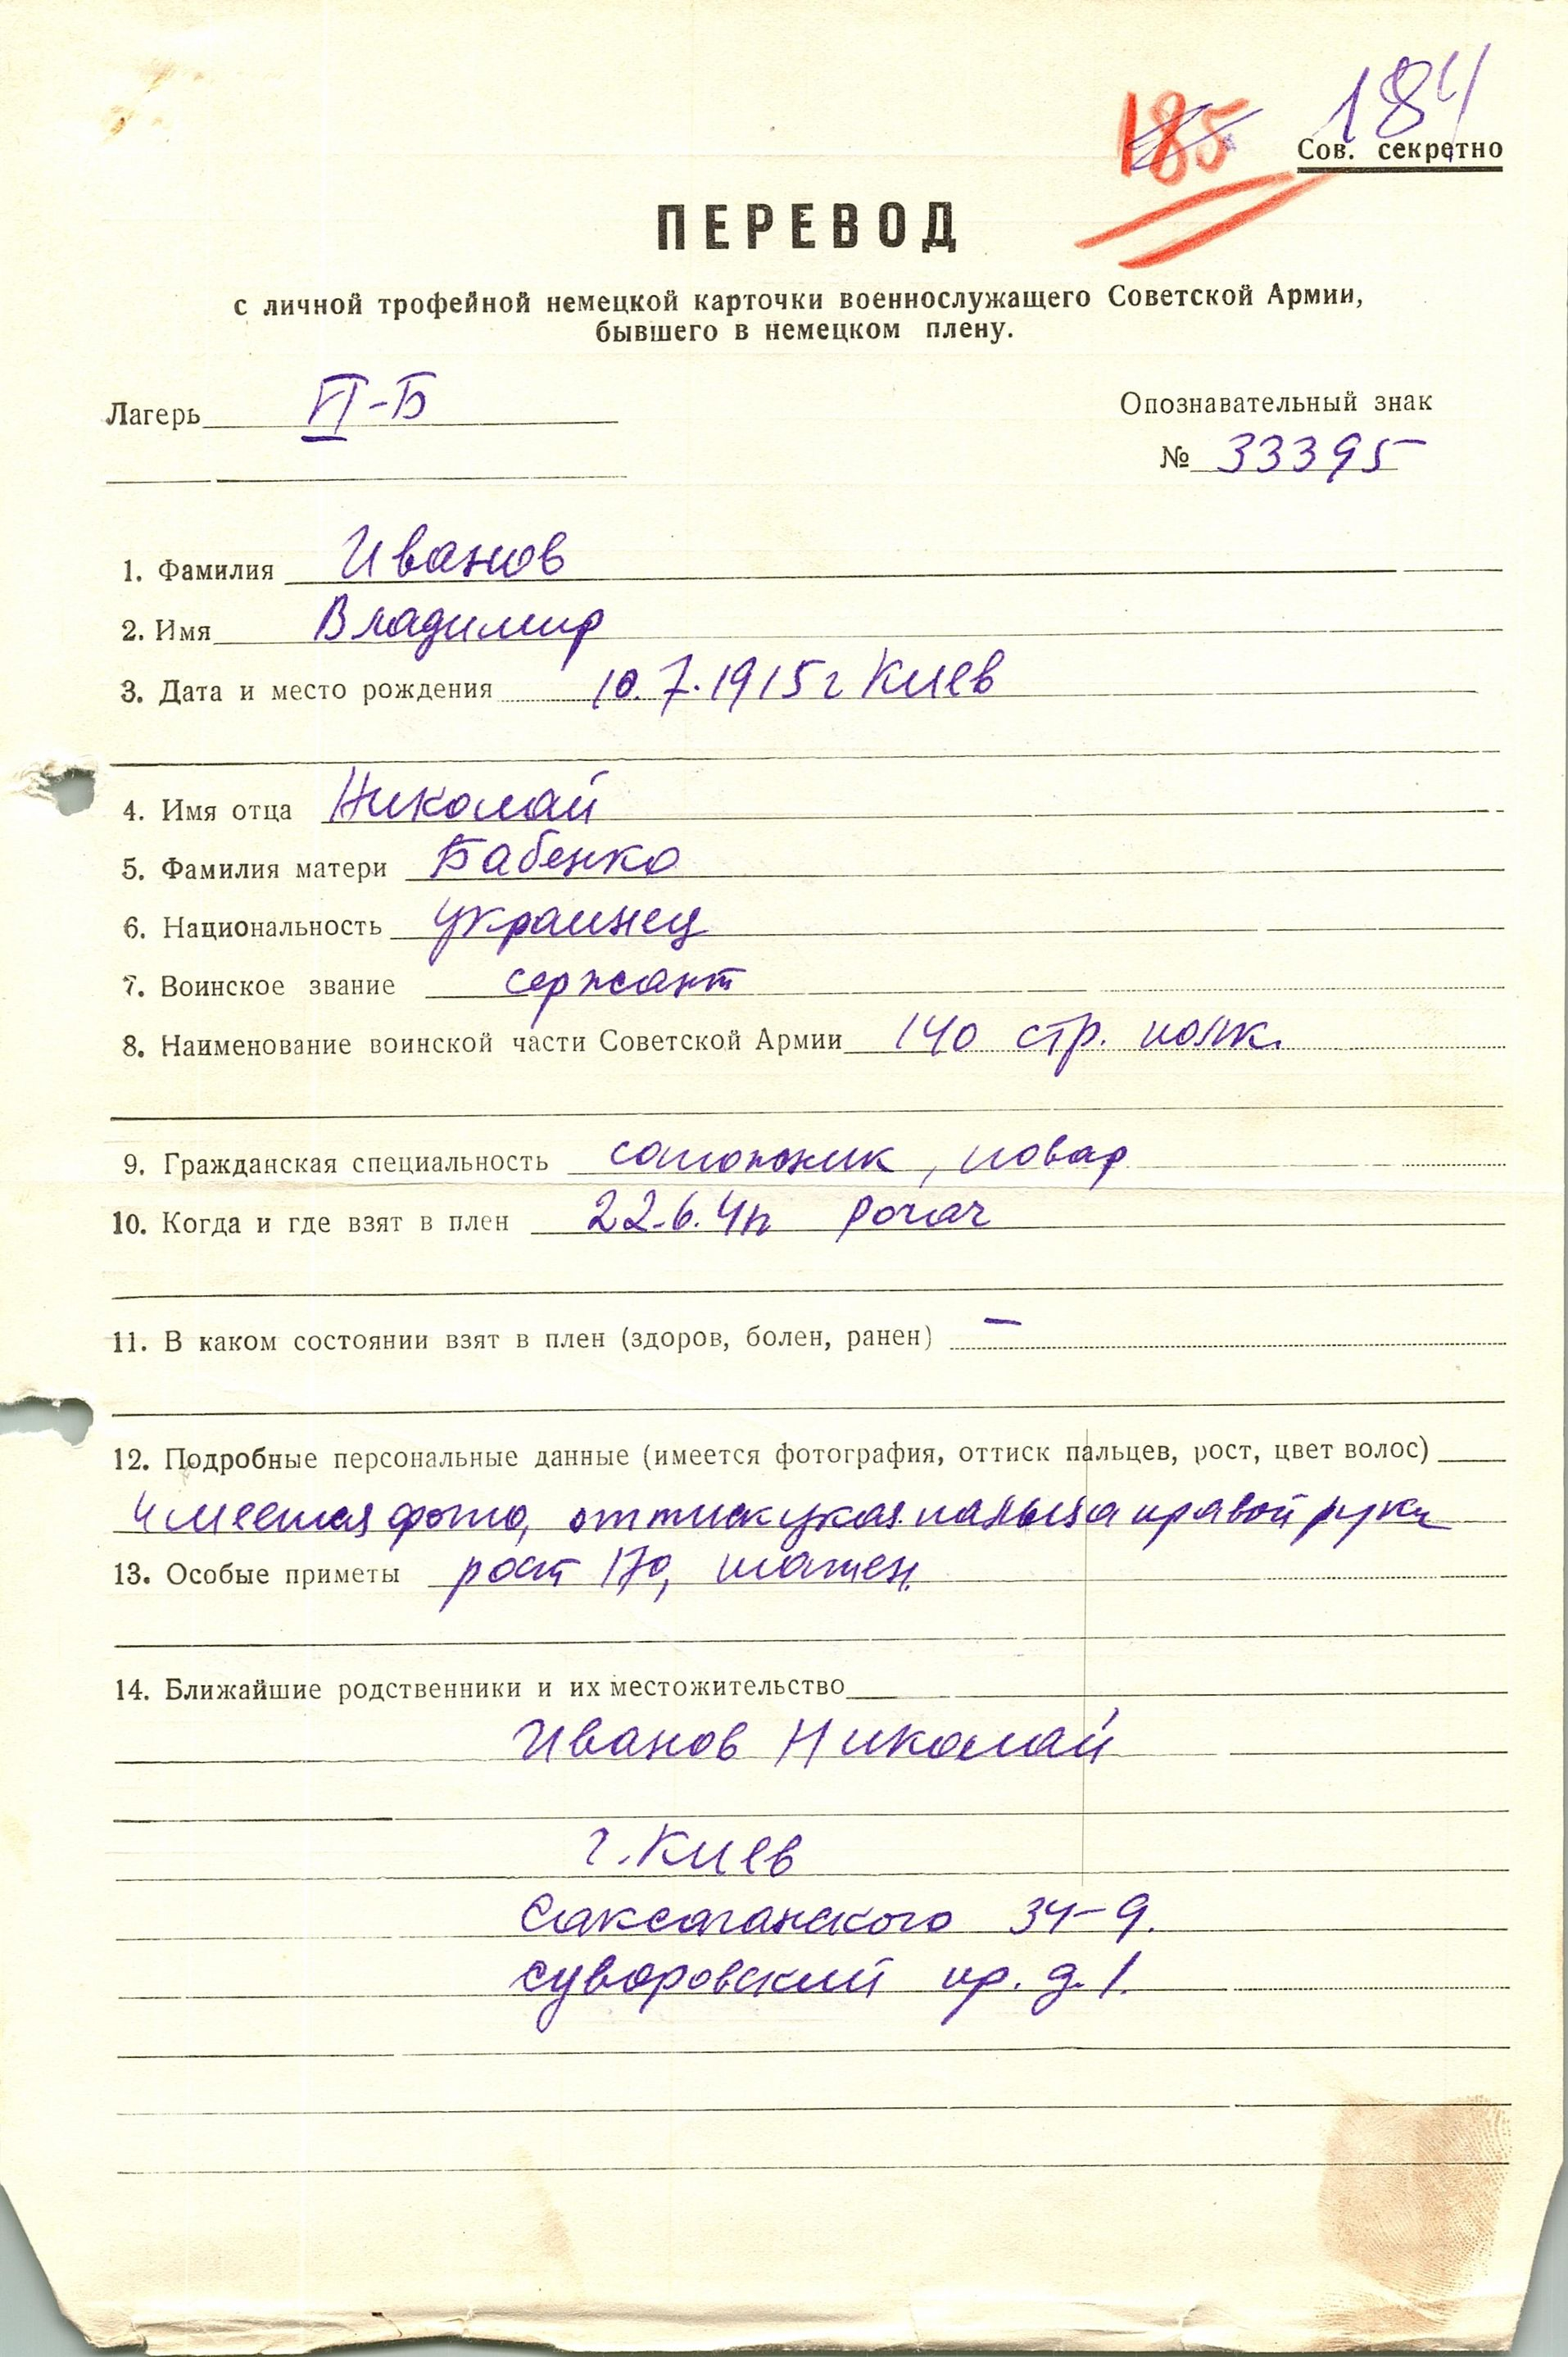 185 184
Сов. секретно
ПЕРЕВОД
с личной трофейной немецкой карточки военнослужащего Советской Армии,
бывшего в немецком плену.
Лагерь VI-Б Опознавательный знак
№ 33395
1. Фамилия Иванов
2. Имя Владимир
3. Дата и место рождения 10.7.1915г Киев
4. Имя отца Николай
5. Фамилия матери Бабенко
6. Национальность украинец
7. Воинское звание сержант
8. Наименование воинской части Советской Армии 140 стр. полк.
9. Гражданская специальность сапожник, повар
10. Когда и где взят в плен 22.6.41г Рогач
11. В каком состоянии взят в плен (здоров, болен, ранен) —
12. Подробные персональные данные (имеется фотография, оттиск пальцев, рост, цвет волос)
имеется фото, оттиск указ. пальца правой руки
13. Особые приметы рост 170, шатен.
14. Ближайшие родственники и их местожительство
Иванов Николай
г. Киев
Саксаганского 34-9.
Суворовский пр. д. 1.